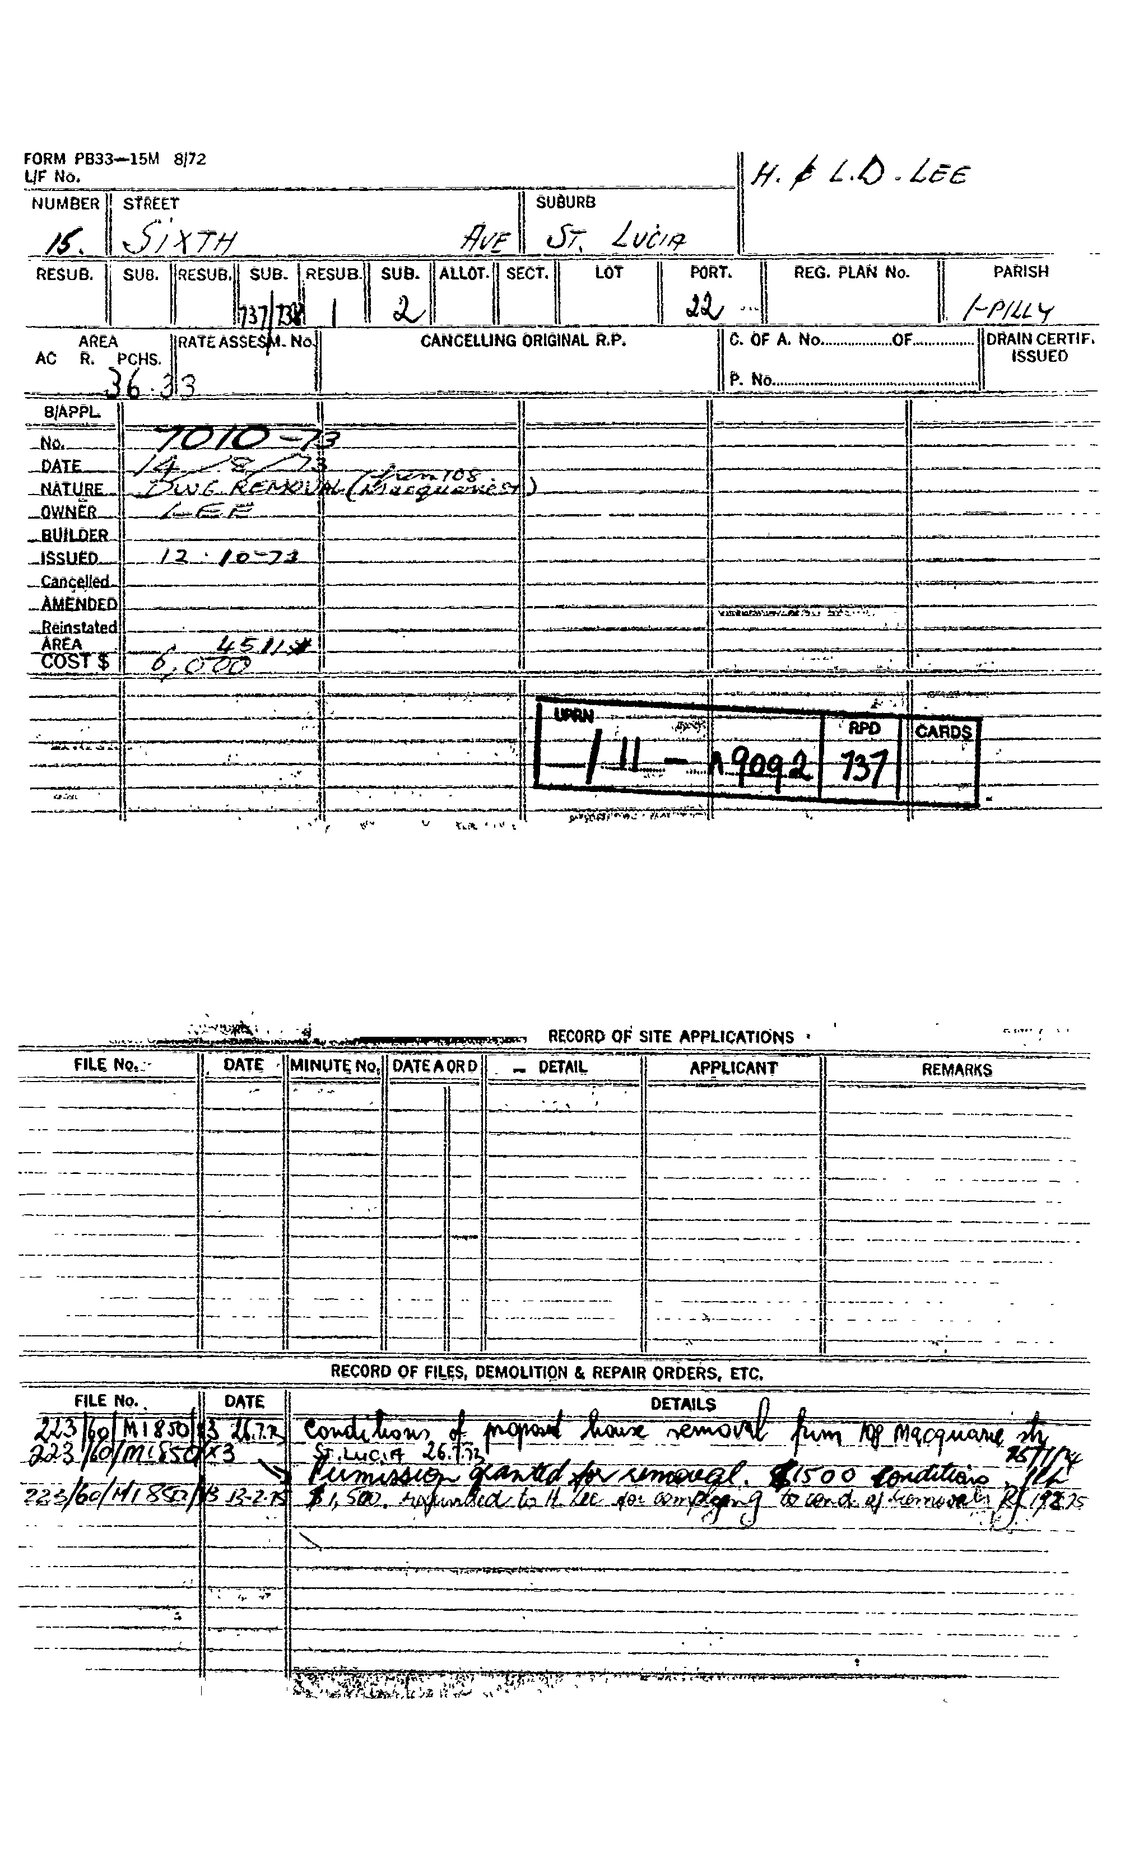 FORM PB33—15M 8/72
L/F No.
H. & L.D. LEE
NUMBER STREET SUBURB
15. SIXTH AVE ST. LUCIA
RESUB. SUB. RESUB. SUB. RESUB. SUB. ALLOT. SECT. LOT PORT. REG. PLAN No. PARISH
737/738 1 2 22 I-PILLY
AREA RATE ASSESM. No. CANCELLING ORIGINAL R.P. C. OF A. No. OF DRAIN CERTIF. ISSUED
AC R. PCHS.
36.33 P. No.
B/APPL.
No. 7010-73
DATE 14/8/73
NATURE DWG REMOVAL (from 108 Macquarie St)
OWNER LEE
BUILDER
ISSUED 12.10-73
Cancelled
AMENDED
Reinstated
AREA 4511
COST $ 6,000
UPRN RPD CARDS
9092 737
RECORD OF SITE APPLICATIONS
FILE No. DATE MINUTE No. DATE A OR D DETAIL APPLICANT REMARKS
RECORD OF FILES, DEMOLITION & REPAIR ORDERS, ETC.
FILE No. DATE DETAILS
223/60/M1850/ 26.7.73 Conditions of proposed house removal from 108 Macquarie str
223/60/M1850/ ST. LUCIA 26.7.73
Permission granted for removal. $1500 conditions
223/60/M1850/ 13-2-75 $1,500. refunded to H Lee for complying to cond of removals